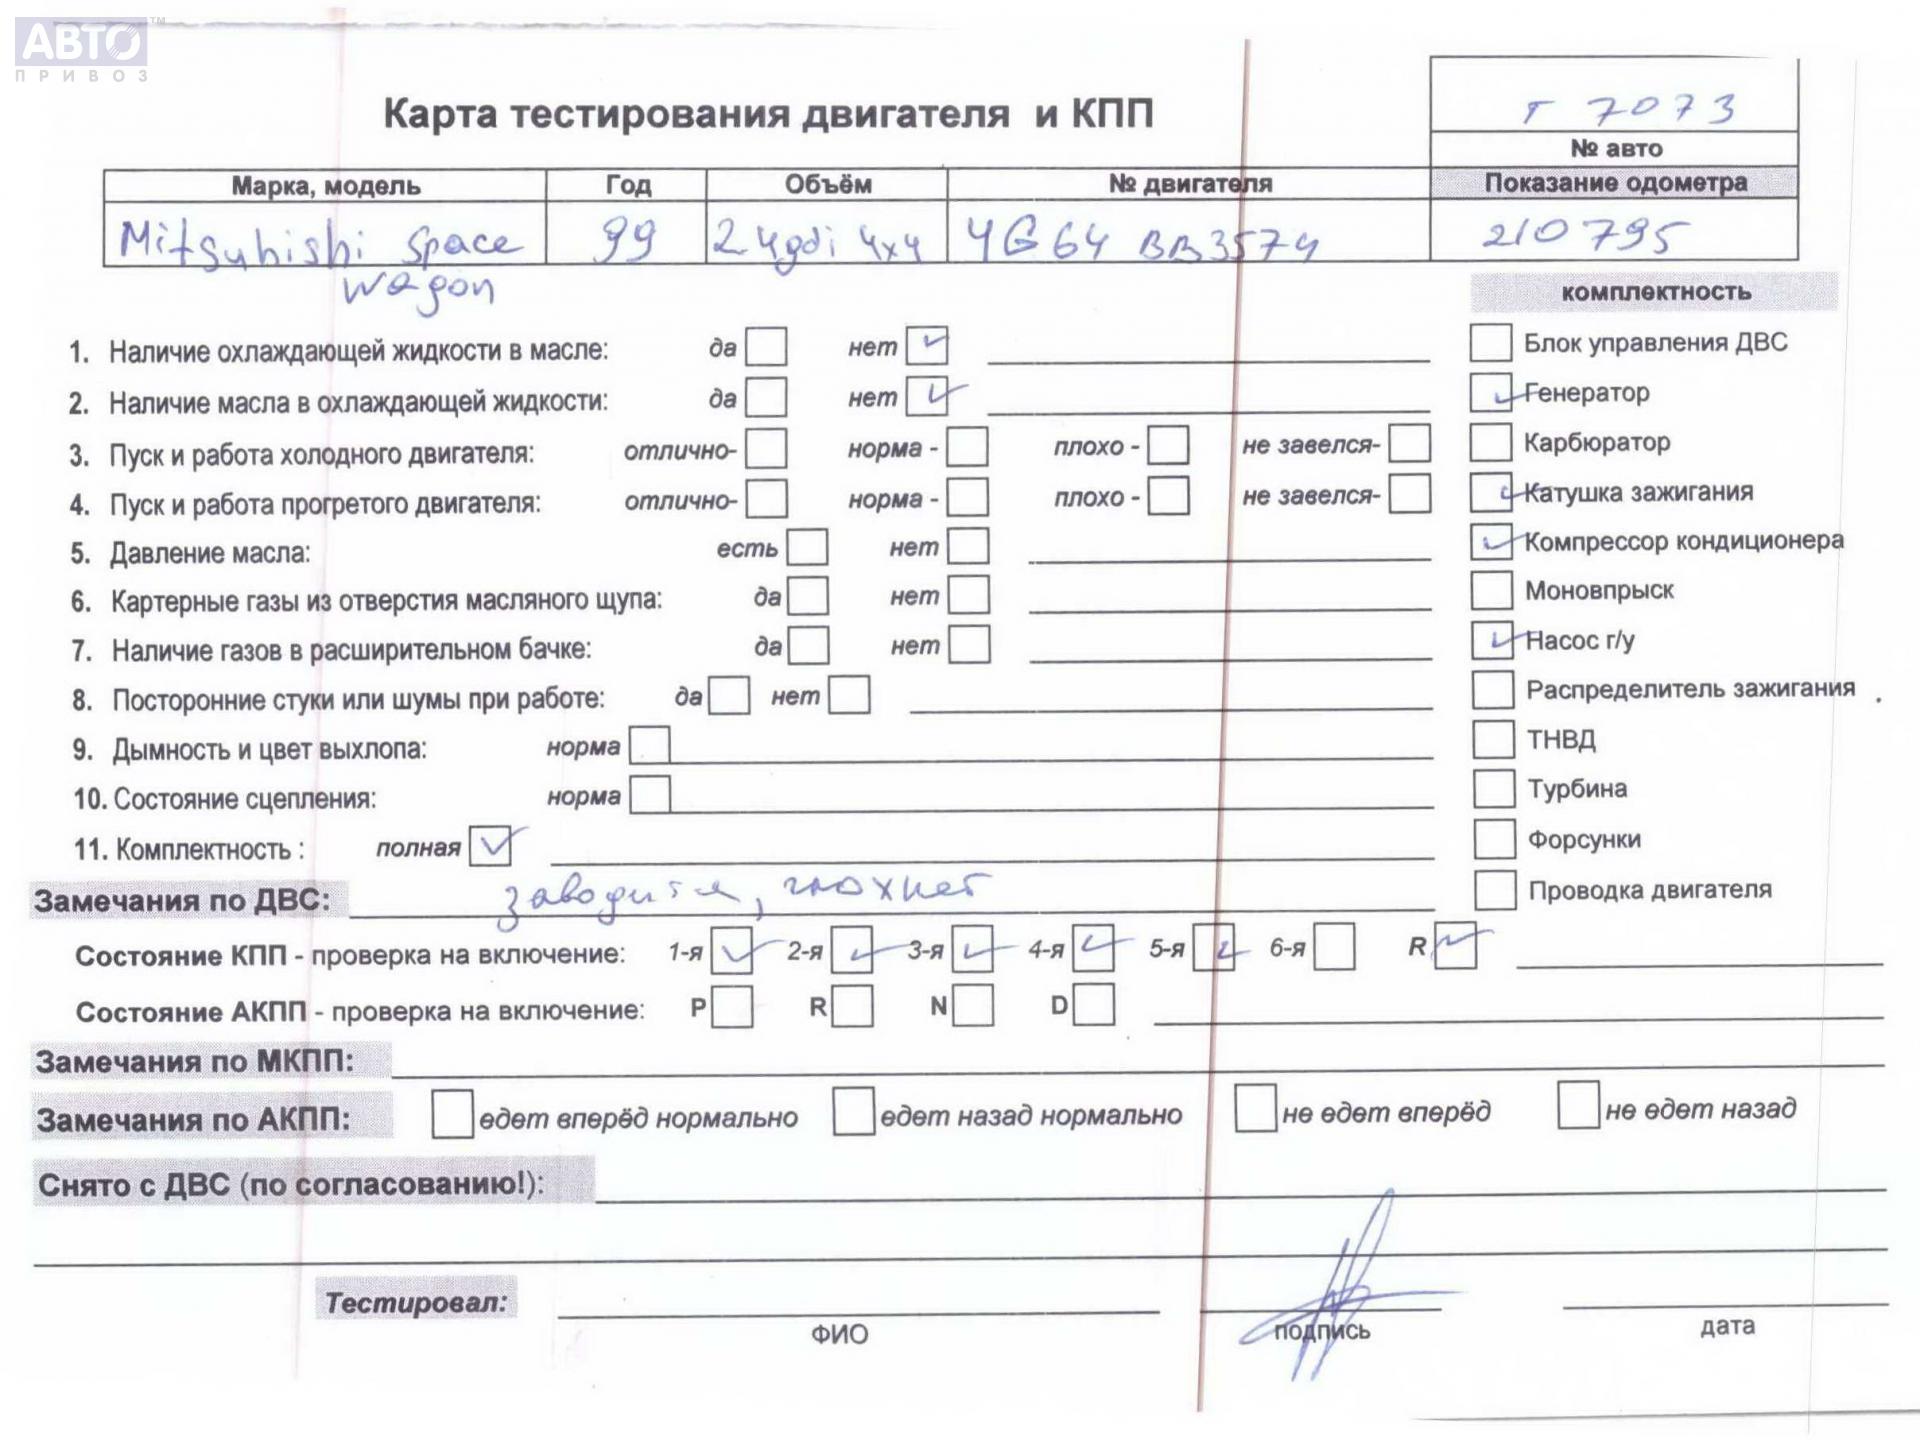 АВТО™
ПРИВОЗ
т 7073
Карта тестирования двигателя и КПП
№ авто
Марка, модель Год Объём № двигателя Показание одометра
Mitsubishi Space 99 2 4gdi 4x4 4G64 BB3574 210795
wagon
комплектность
1. Наличие охлаждающей жидкости в масле: да нет ✓
Блок управления ДВС
2. Наличие масла в охлаждающей жидкости: да нет ✓
✓ Генератор
3. Пуск и работа холодного двигателя: отлично- норма - плохо - не завелся-
Карбюратор
4. Пуск и работа прогретого двигателя: отлично- норма - плохо - не завелся-
✓ Катушка зажигания
5. Давление масла: есть нет
✓ Компрессор кондиционера
6. Картерные газы из отверстия масляного щупа: да нет
Моновпрыск
7. Наличие газов в расширительном бачке: да нет
✓ Насос г/у
8. Посторонние стуки или шумы при работе: да нет
Распределитель зажигания
9. Дымность и цвет выхлопа: норма
ТНВД
10. Состояние сцепления: норма
Турбина
11. Комплектность : полная ✓
Форсунки
Замечания по ДВС: заводится, глохнет
Проводка двигателя
Состояние КПП - проверка на включение: 1-я ✓ 2-я ✓ 3-я ✓ 4-я ✓ 5-я ✓ 6-я R ✓
Состояние АКПП - проверка на включение: P R N D
Замечания по МКПП:
Замечания по АКПП: едет вперёд нормально едет назад нормально не едет вперёд не едет назад
Снято с ДВС (по согласованию!):
Тестировал:
ФИО подпись дата